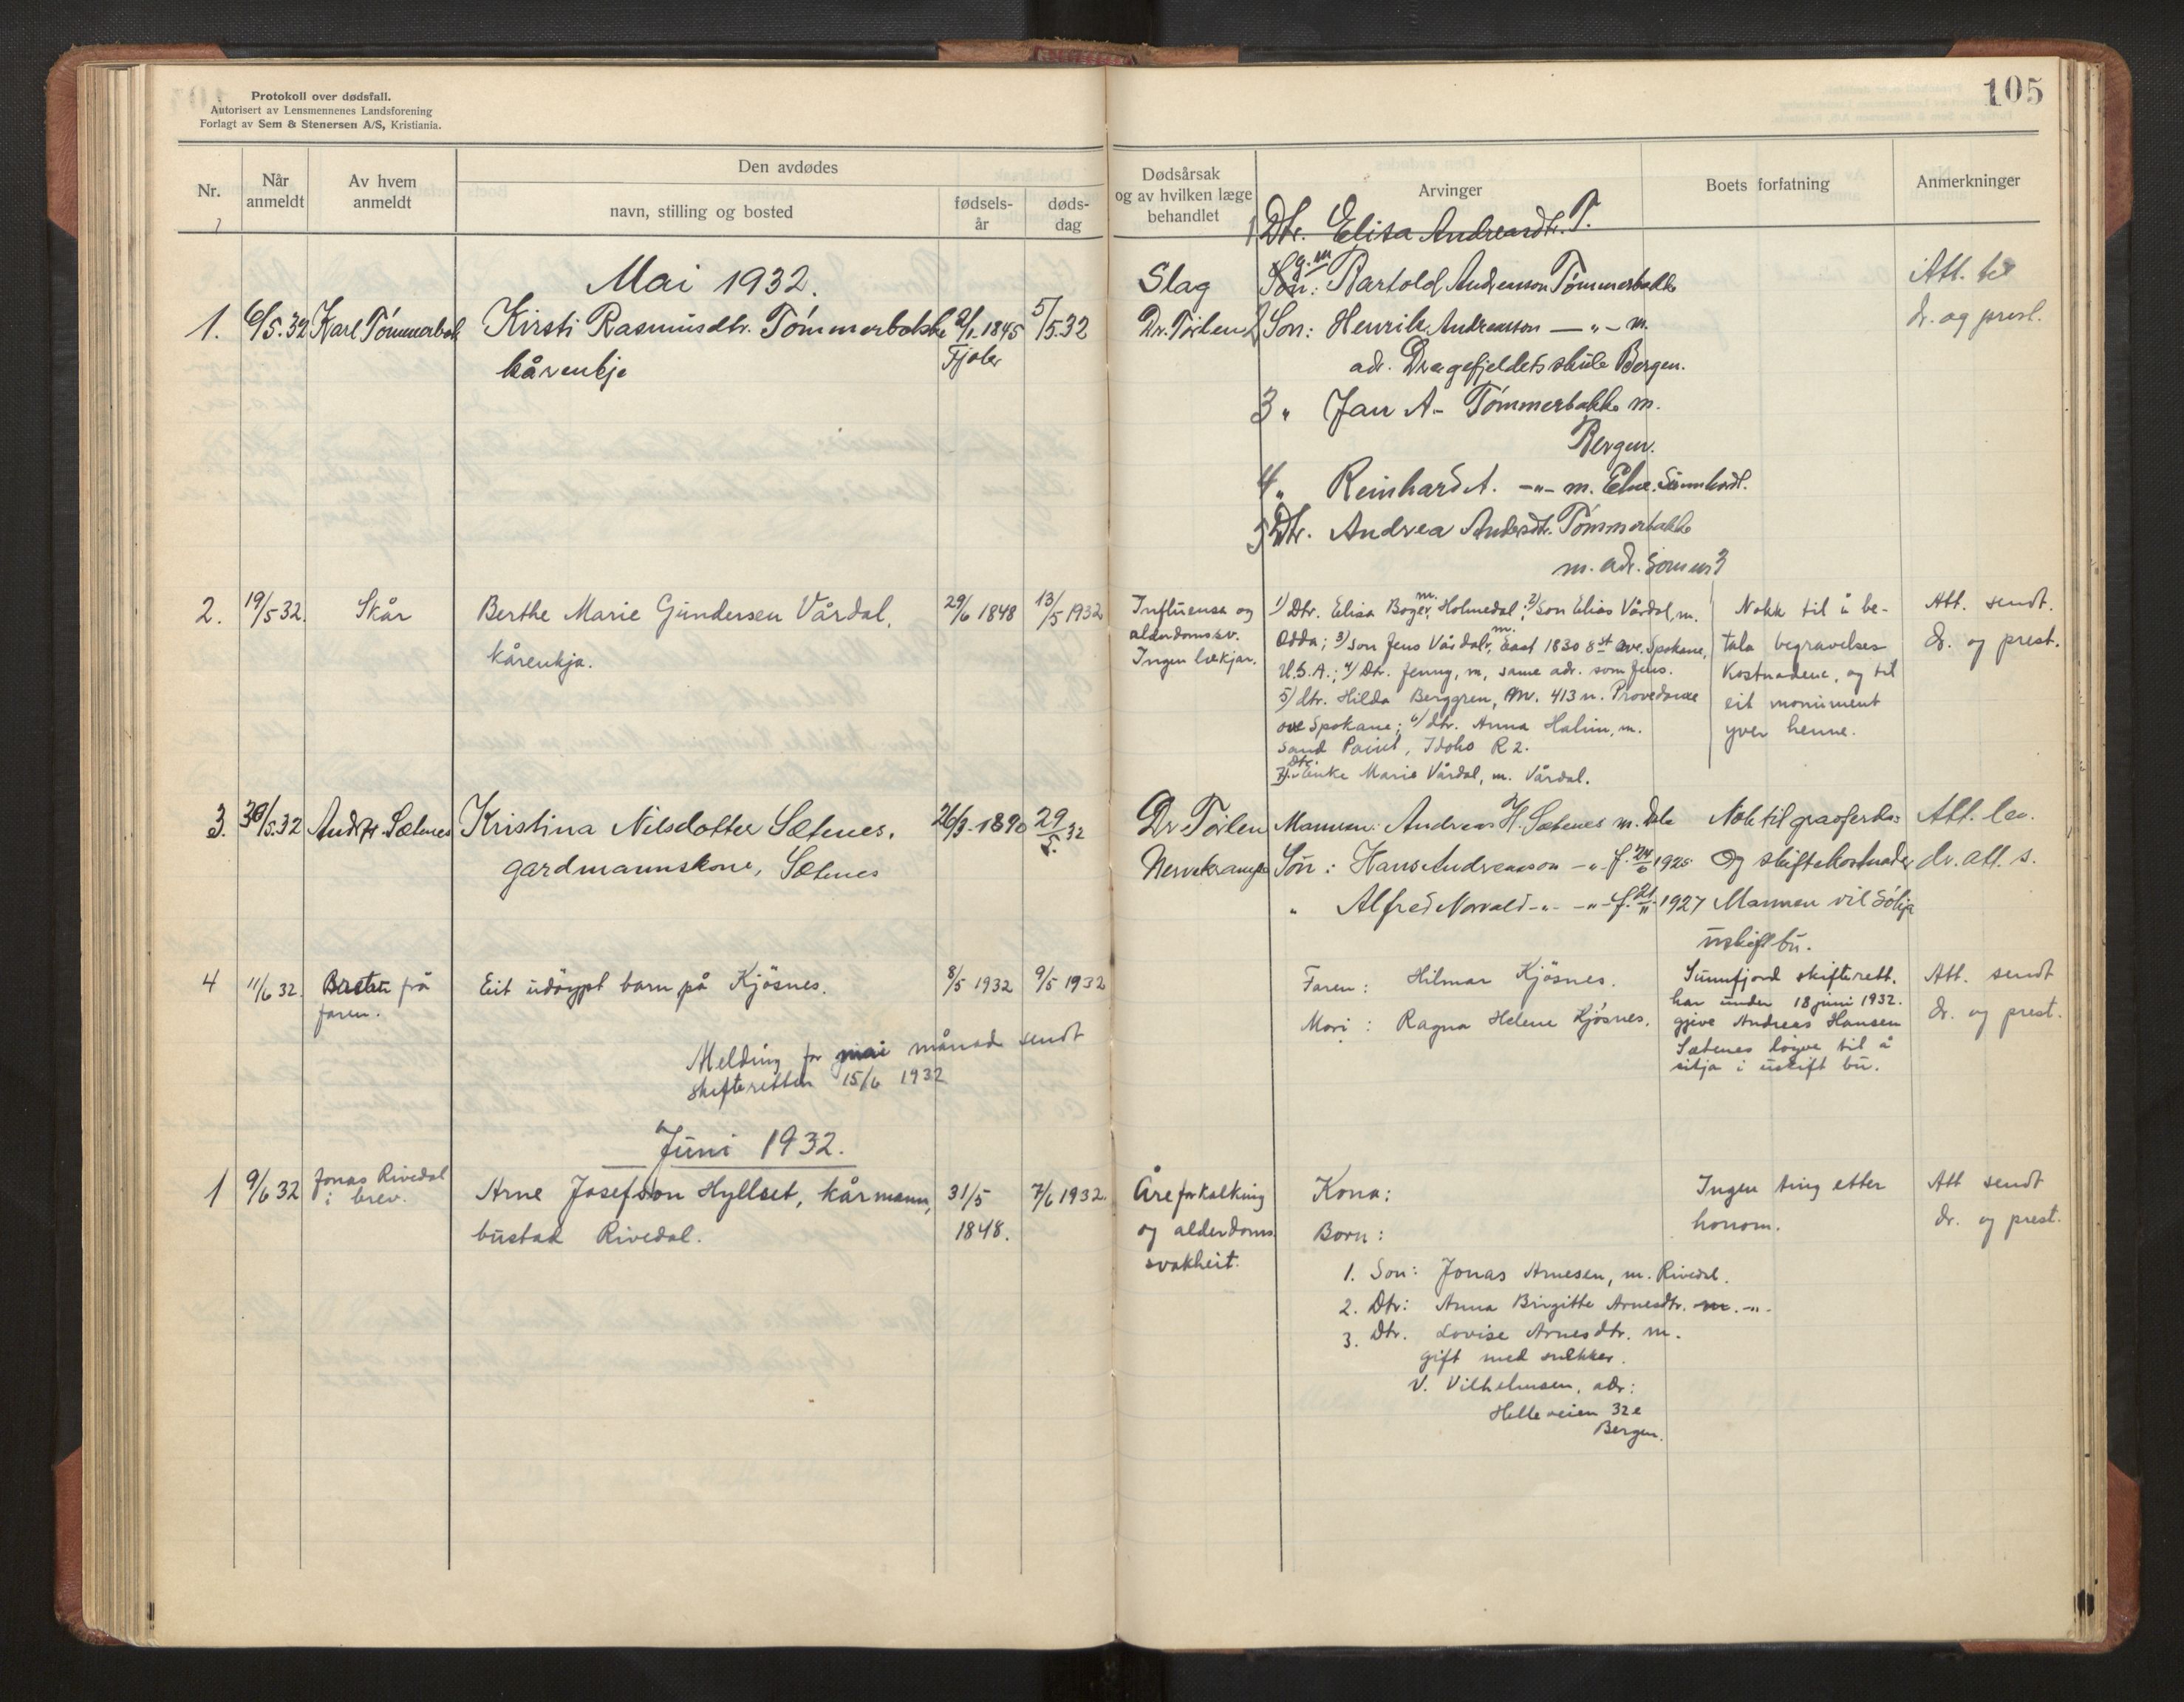 105
Protokoll over dødsfall.
Autorisert av Lensmennenes Landsforening
Forlagt av Sem & Stenersen A/S, Kristiania.
Nr.
Når anmeldt
Av hvem anmeldt
Den avdødes
navn, stilling og bosted
fødsels-år
døds-dag
Dødsårsak og av hvilken læge behandlet
Arvinger
Boets forfatning
Anmerkninger
Mai 1932.
1. 6/5.32 Karl Tömmerbak Kirsti Rasmusdtr. Tömmerbakke 2/1 1845 5/5.32
kårenkje Fjaler
Slag
Dr. Tøilen
1 Dtr. Elisa Andreasdtr. T.
g. m
Son: Bartold Andreasson Tömmerbakke
2 Son: Henrik Andreasson — „ — m.
adr. Dragefjeldets skule Bergen.
3 „ Jan A. Tömmerbakke m.
Bergen.
4 „ Reinhard A. -„- m. Etne. Sunnhordl.
5 Dtr. Andrea Andersdtr. Tömmerbakke
m. adr. som nr 3
Att. til
dr. og prest.
2. 19/5 32. Skår Berthe Marie Gundersen Vårdal, 29/6 1848 13/5 1932
kårenkja.
Influensa og
alderdomssv.
Ingen lækjar.
1) Dtr. Elisa Boger, m. Holmedal; 2) Son Elias Vårdal, m.
Odda; 3) Son Jens Vårdal, m. East 1830 8st Ave. Spokane,
U.S.A.; 4) Dtr. Jenny, m, same adr. som Jens.
5) dtr. Hilda Berggren, m. 413 n.
ave Spokane; 6) dtr. Anna Halim, m.
Sand Point, Idoho R 2.
7) Dtr. Enke Marie Vårdal, m. Vårdal.
Nokk til å be-
tala begravelses
kostnadene, og til
eit monument
yver henne.
Att. sendt.
dr. og prest.
3. 30/5.32 Andr. H. Sætenes Kristina Nilsdotter Sætenes. 26/3 1890 29/5 32
gardmannskone, Sætenes
Dr Tøilen
Nervekrampe
Mannen: Andreas H. Sætenes m. Dale
Son: Hans Andreasson -„- f. 24/6 1925
„ Alfred Norvald -„- -„- f. 21/11 1927
Nok til gravferds-
og skiftekostnader
Mannen vil sökja
uskift bu.
Att. lev.
dr. att. s.
4 11/6 32. Brev frå Eit udöypt barn på Kjösnes. 8/5 1932 9/5 1932
faren.
Faren: Hilmar Kjösnes.
Mori: Ragna Helene Kjösnes.
Sunnfjord skifterett.
har under 18 juni 1932.
gjeve Andreas Hansen
Sætenes löyve til å
sitja i uskift bu.
Att. sendt
dr. og prest.
Melding for mai månad sendt
skifteretten 15/6 1932
Juni 1932.
1 9/6 32 Jonas Rivedal Arne Josefson Hyllset, kårmann, 31/5 7/6 1932.
i brev. bustad Rivedal. 1848.
Åreforkalkning
og alderdoms
svakheit.
Kona:
Born:
1. Son: Jonas Arnesen, m. Rivedal.
2. Dtr: Anna Birgitte Arnesdtr. m. -„-
3. Dtr. Lovise Arnesdtr. m.
gift med snekker.
V. Vilhelmsen, adr:
Helleveien 32e
Bergen.
Ingen ting etter
honom.
Att sendt
dr. og prest.